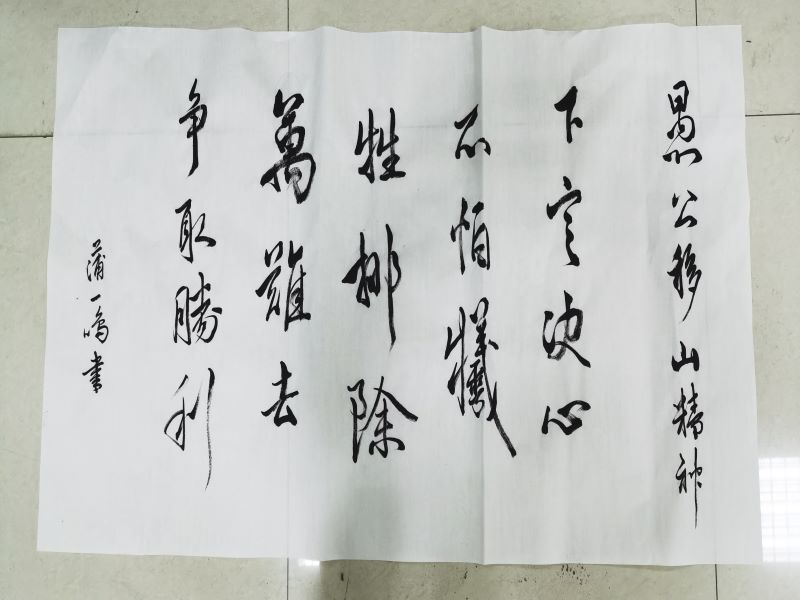 愚公移山精神
下定决心
不怕犧
牲排除
萬難去
争取勝利
蒲一鳴書